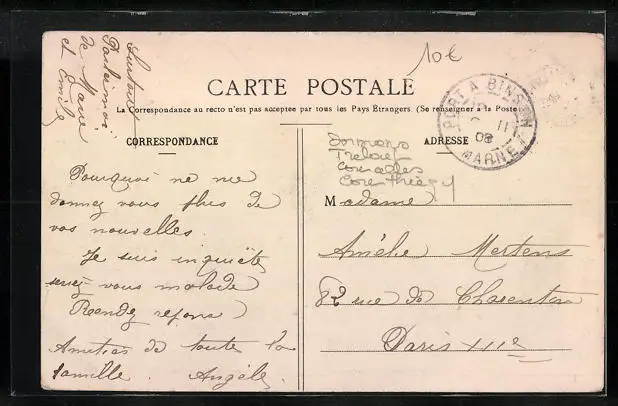 10€
Surtout
Parlez moi
de Marie
et Emile
CARTE POSTALE
La Correspondance au recto n'est pas acceptée par tous les Pays Étrangers (Se renseigner à la Poste
CORRESPONDANCE
ADRESSE
PORT A BINSON
11
08
MARNE
Dormans
Treloup
Courcelles
Pourquoi ne me
donnez vous plus de
vos nouvelles.
Je suis inquiète
seriez vous malade
Rendez repons
Amitiés de toute la
famille. Angèle
Madame
Amélie Mertens
82 rue de Charenton
Paris XIIe